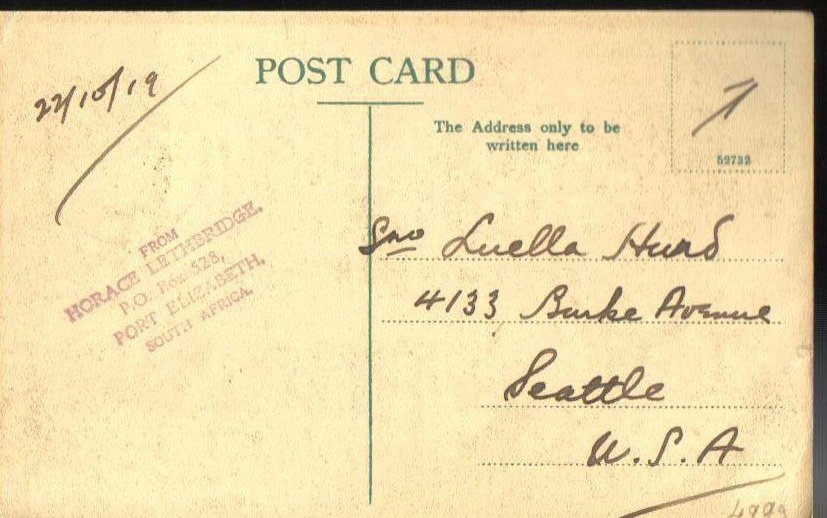 22/10/19
POST CARD
The Address only to be
written here
52732
FROM
HORACE LETHERIDGE.
P.O. Box 528,
PORT ELIZABETH,
SOUTH AFRICA.
Luella Hurd
4133 Burke Avenue
Seattle
U.S.A